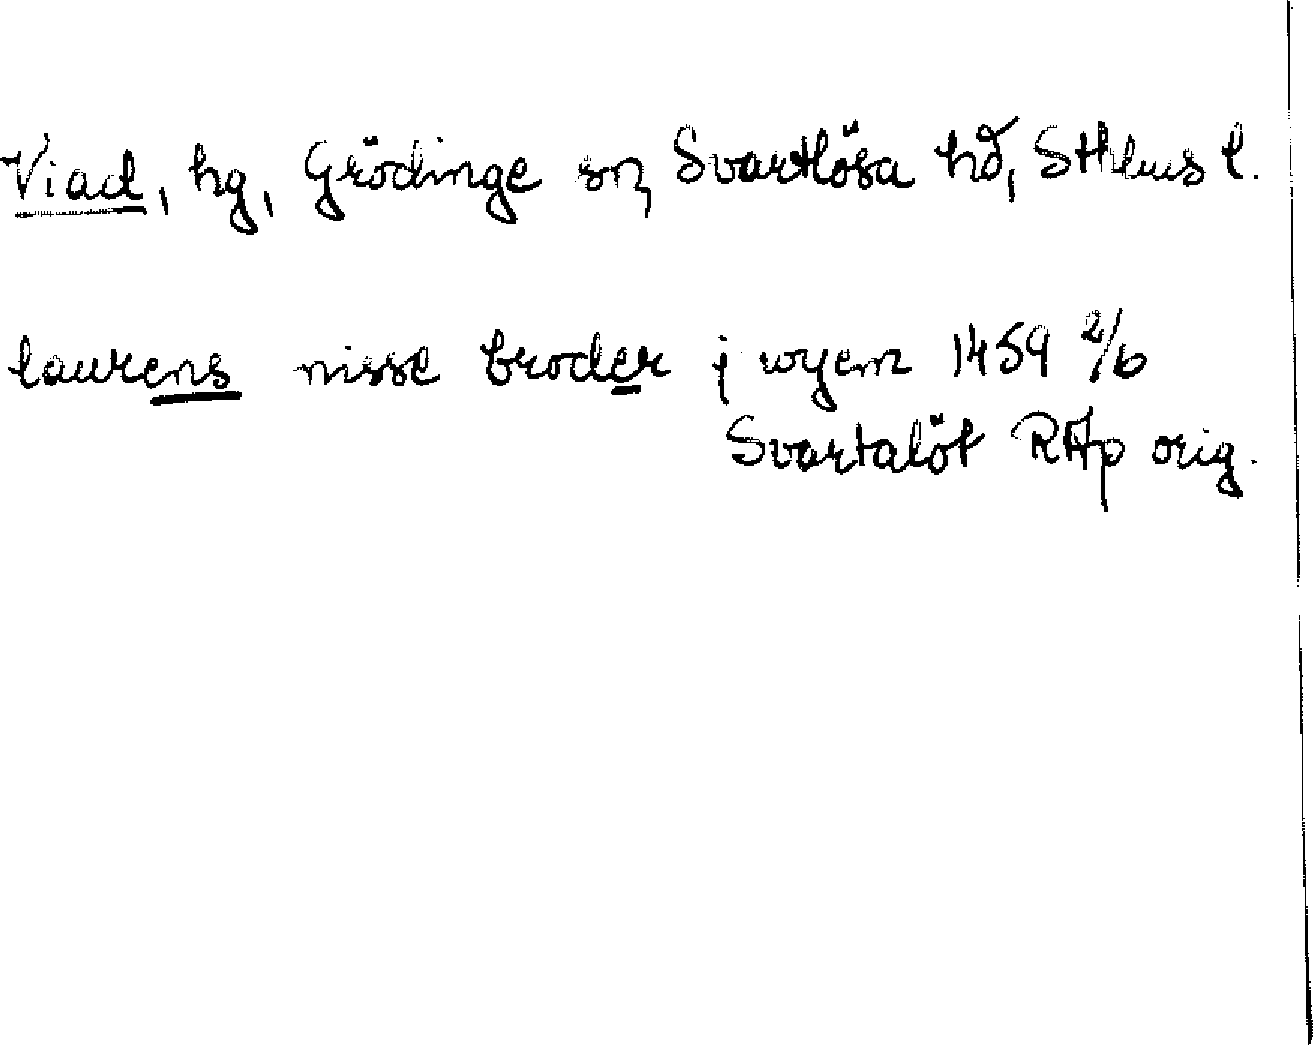 Viad, hg, Grödinge sn, Svartlösa hd, Sthlms l.
laurens nisse broder j wyem 1459 2/6
Svartalöt RAp orig.